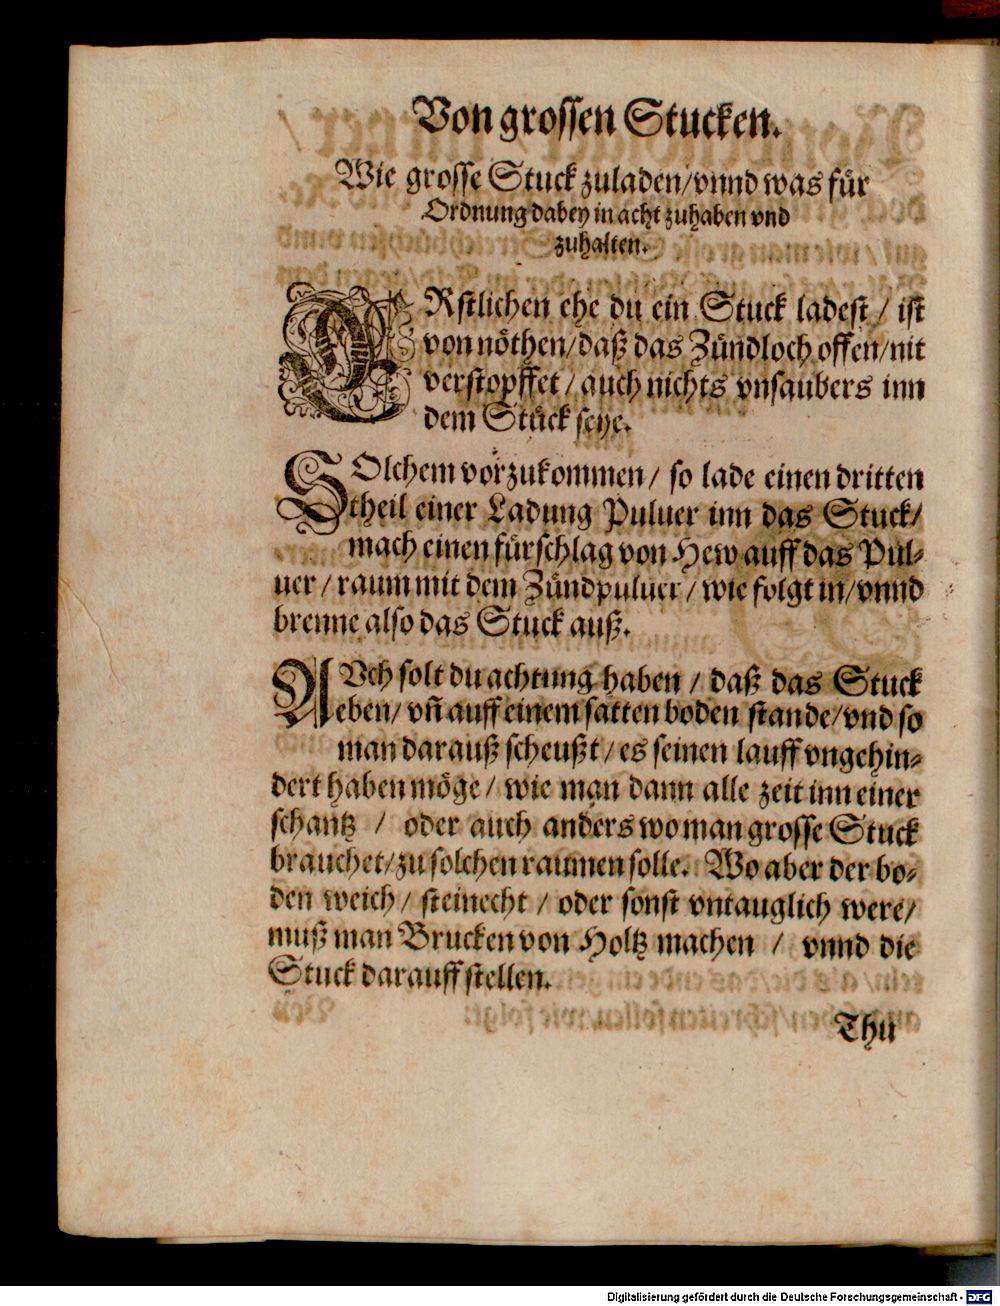 Von grossen Stucken.
Wie grosse Stuck zuladen/vnnd was für
Ordnung dabey in acht zuhaben vnd
zuhalten.
ERstlichen ehe du ein Stuck ladest / ist
von nöthen/daß das Zündloch offen/nit
verstopffet / auch nichts vnsaubers inn
dem Stuck seye.
SOlchem vorzukommen / so lade einen dritten
theil einer Ladung Puluer inn das Stuck/
mach einen fürschlag von Hew auff das Pul-
uer / raum mit dem Zündpuluer / wie folgt in/vnnd
brenne also das Stuck auß.
AVch solt du achtung haben / daß das Stuck
eben/ vñ auff einem satten boden stande/vnd so
man darauß scheußt / es seinen lauff vngehin-
dert haben möge / wie man dann alle zeit inn einer
schantz / oder auch anders wo man grosse Stuck
brauchet/zu solchen raumen solle. Wo aber der bo-
den weich / steinecht / oder sonst vntauglich were/
muß man Brucken von Holtz machen / vnnd die
Stuck darauff stellen.
Thu
Digitalisierung gefördert durch die Deutsche Forschungsgemeinschaft - DFG